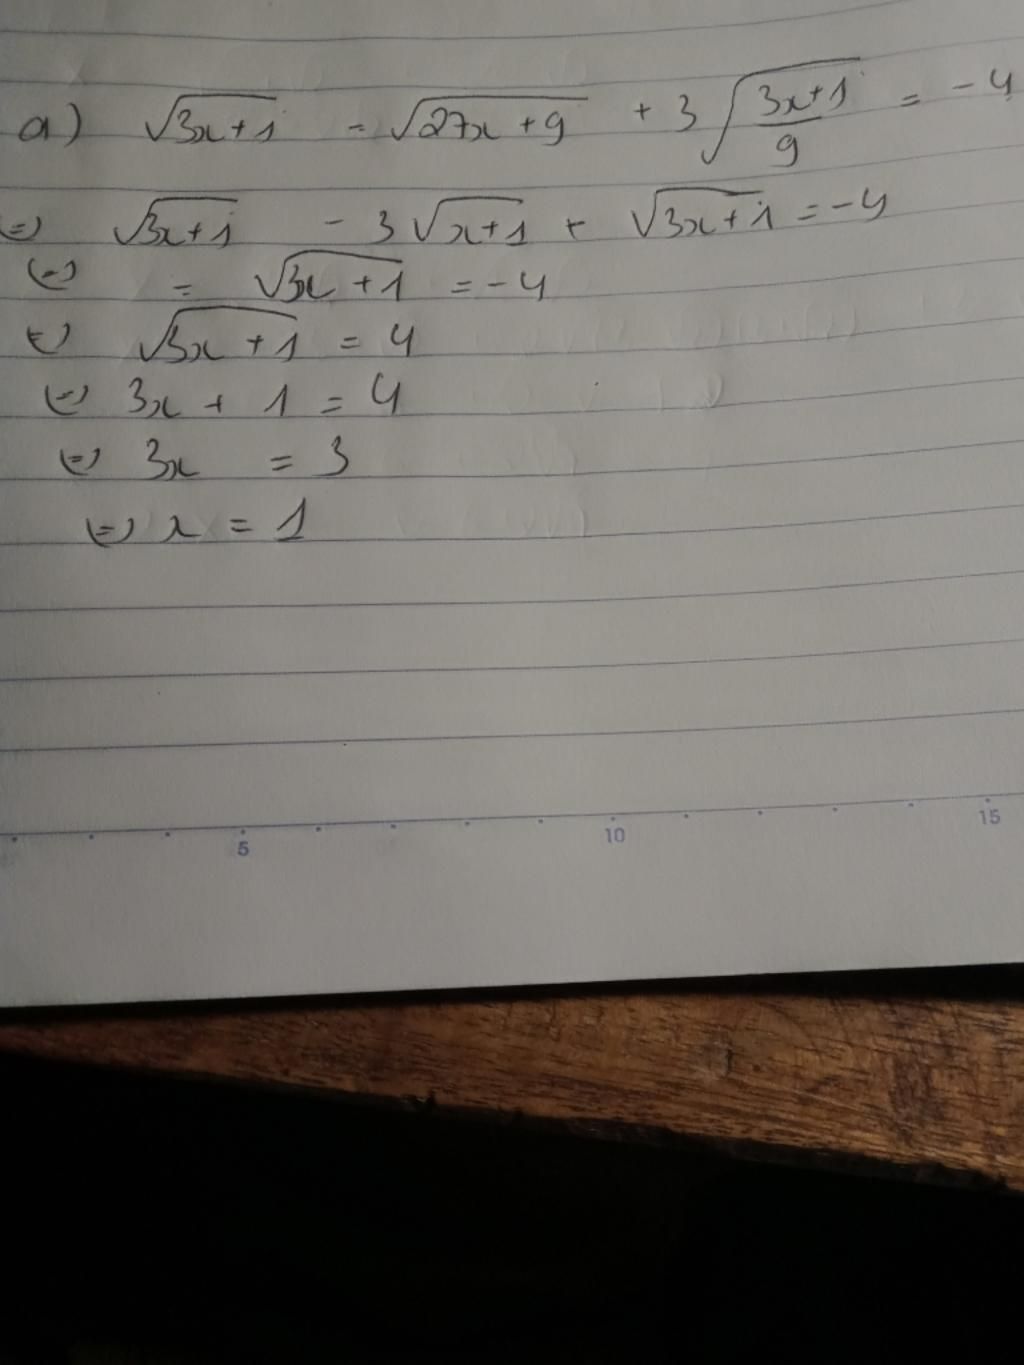 a) √(3x+1) = √(27x+9) + 3√((3x+1)/9) = -4
(=) √(3x+1) - 3√(x+1) + √(3x+1) = -4
(=) = √(3x+1) = -4
(=) √(3x+1) = 4
(=) 3x + 1 = 4
(=) 3x = 3
(=) x = 1
5 10 15